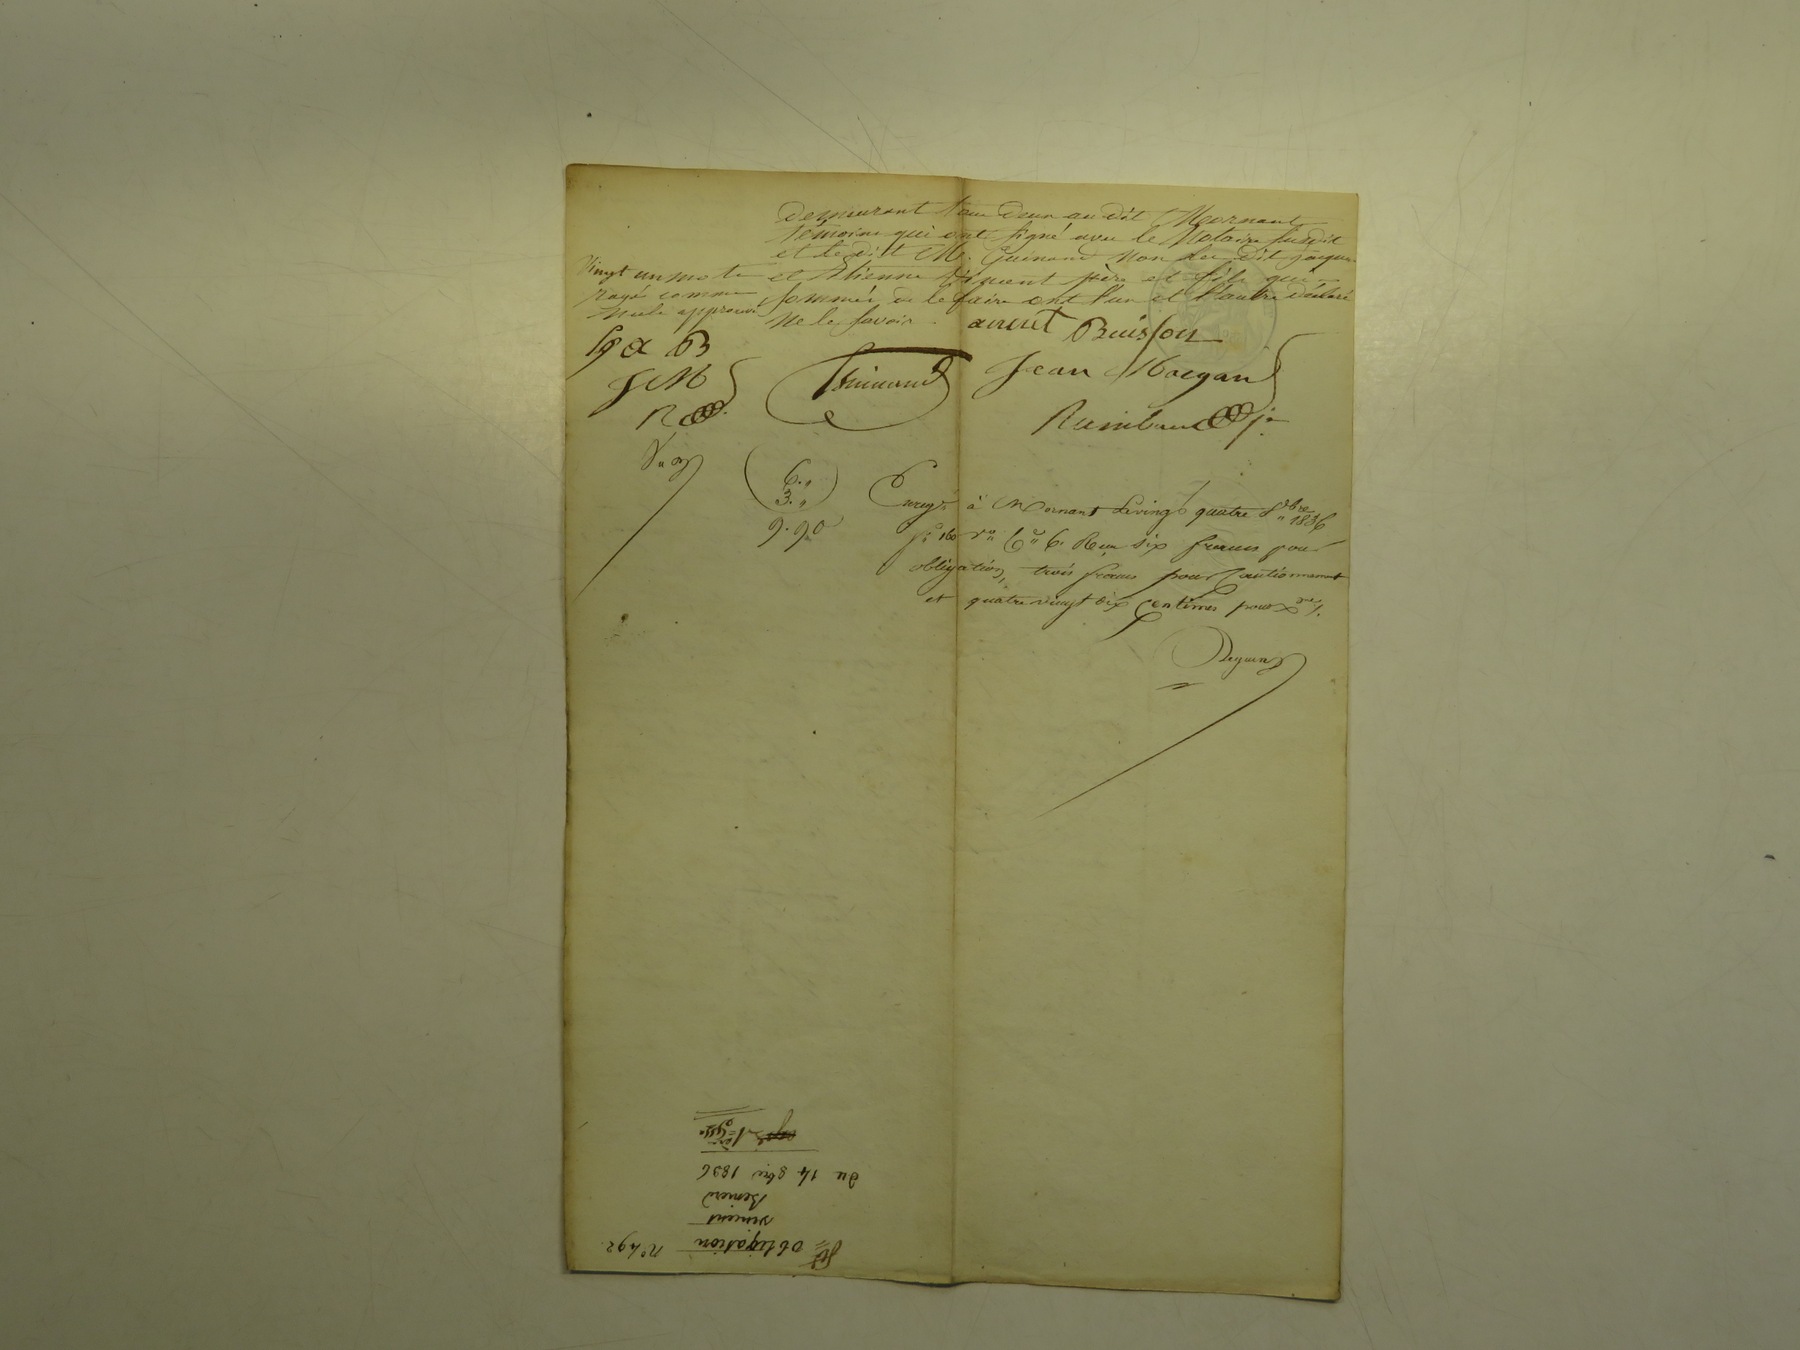 demeurant tous deux au dit Mornant
témoins qui ont signé avec le Notaire susdit
et le dit M. Guinand non les dit jacques
et Etienne Vincent père et fils qui
sommés de le faire ont l'un et l'autre déclaré
ne le savoir.
Vingt un mots
rayé comme
nuls approuvé
a B
J M
R
Guinand
Buisson
Jean Margand
Raimbaud jn
6.,,
3.,,
9.90
Enregé à Mornant le vingt quatre 8bre 1836
fo 160 ro Co 6. Reçu six francs pour
obligation, trois francs pour Cautionnement
et quatre vingt dix Centimes pour
Obligation
No 492
vincent
du 14 8bre 1836